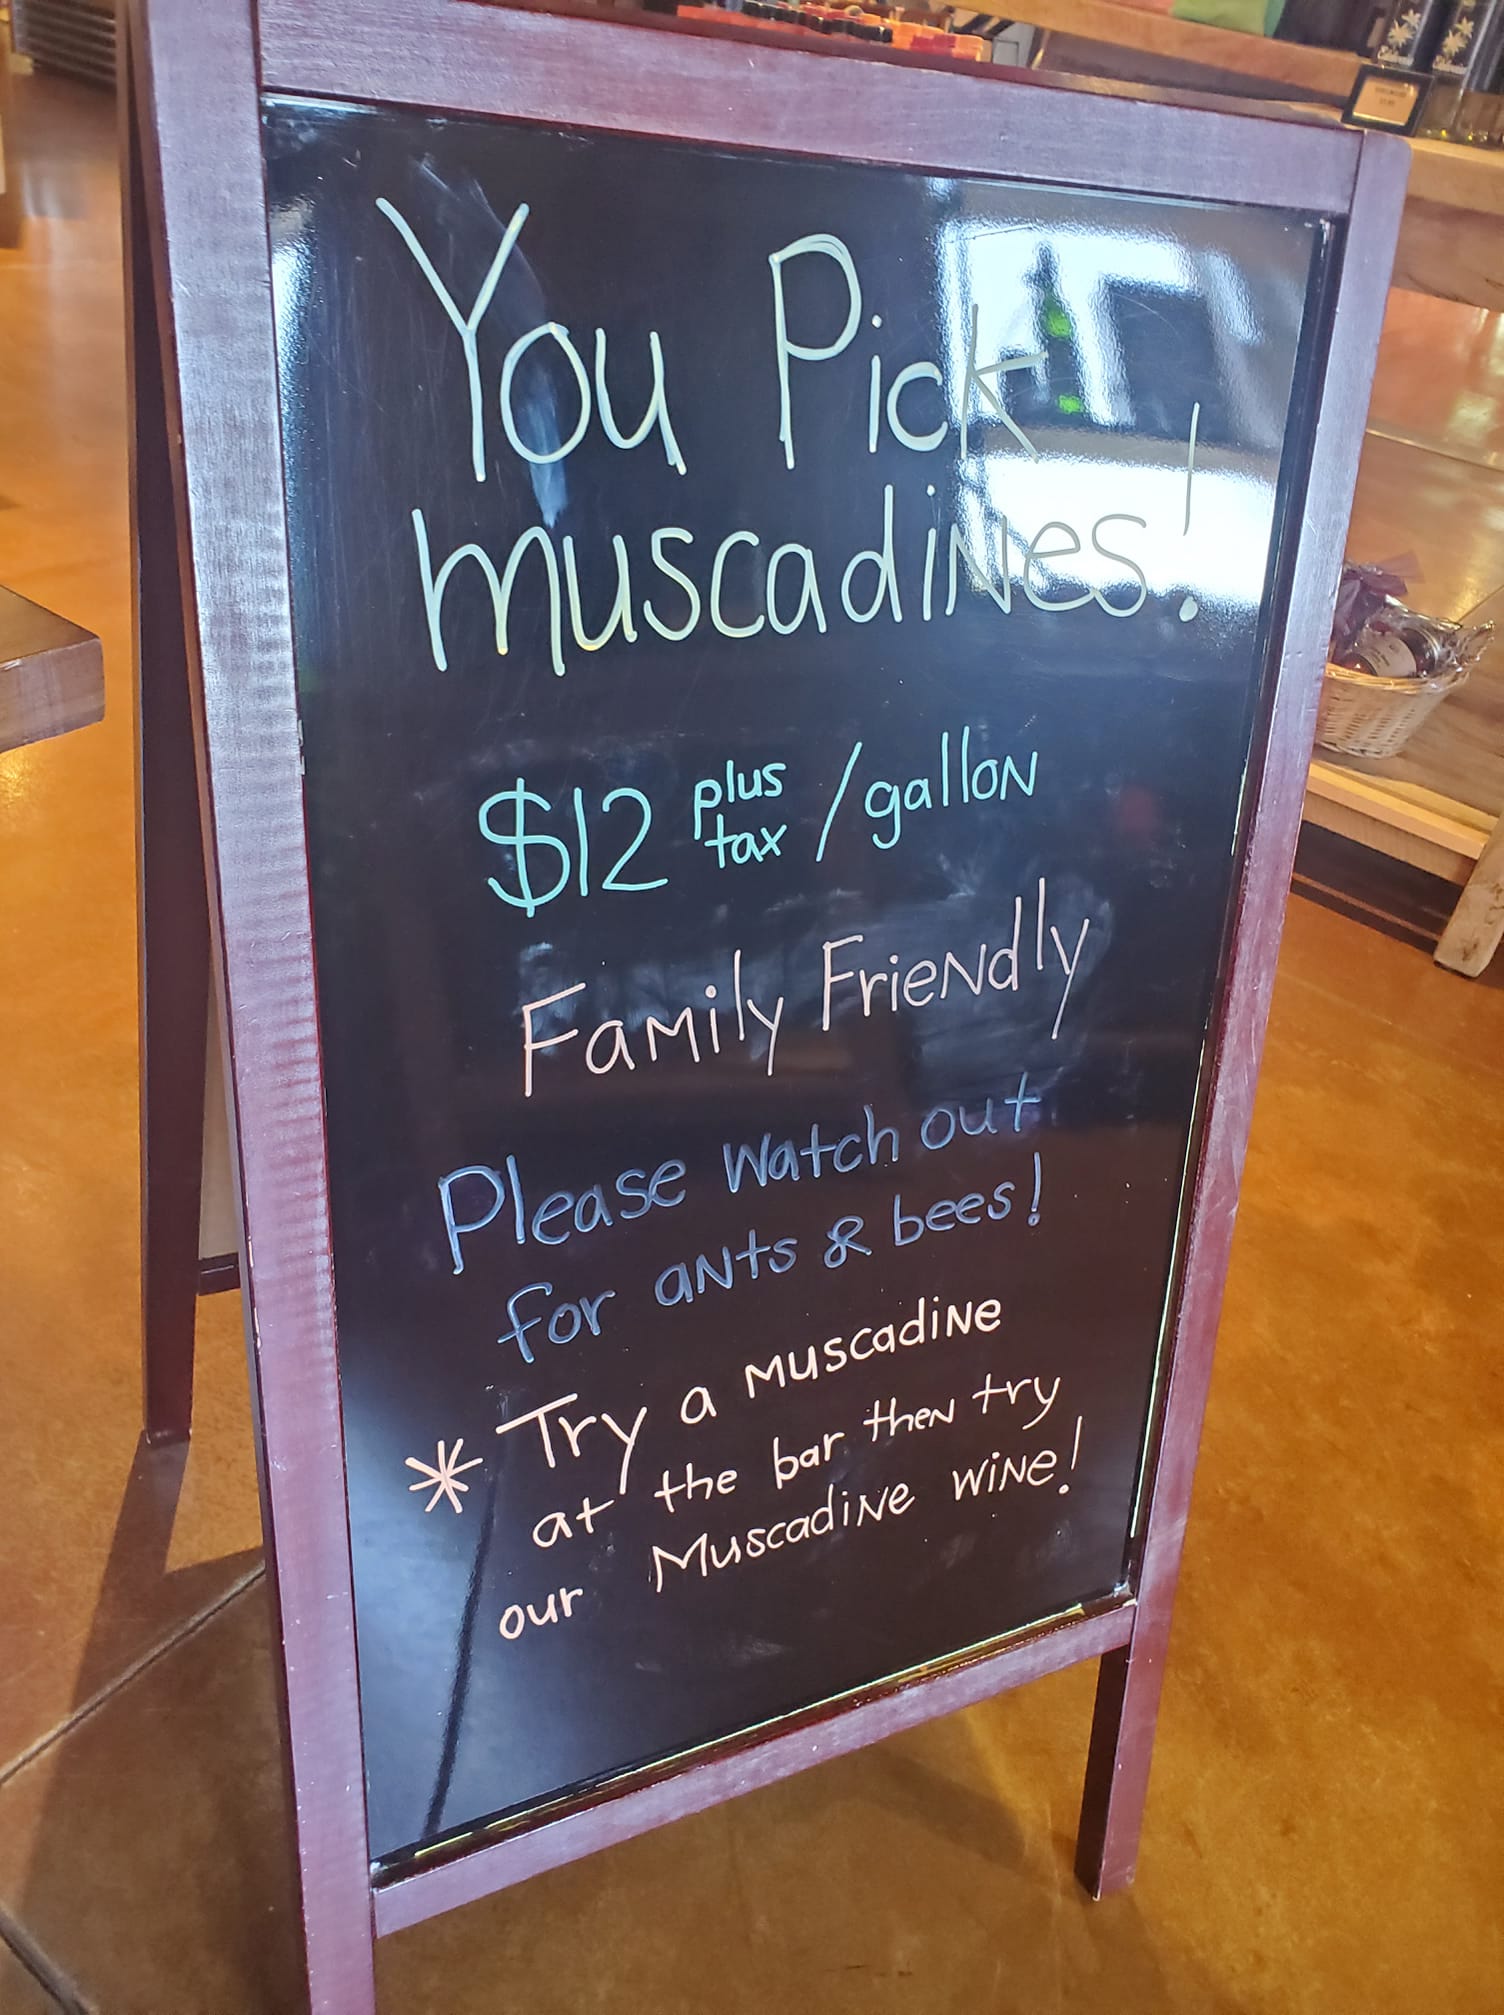 You Pick
Muscadines!
$12 plus tax / gallon
Family Friendly
Please watch out
for ants & bees!
* Try a Muscadine
at the bar then try
our Muscadine wine!